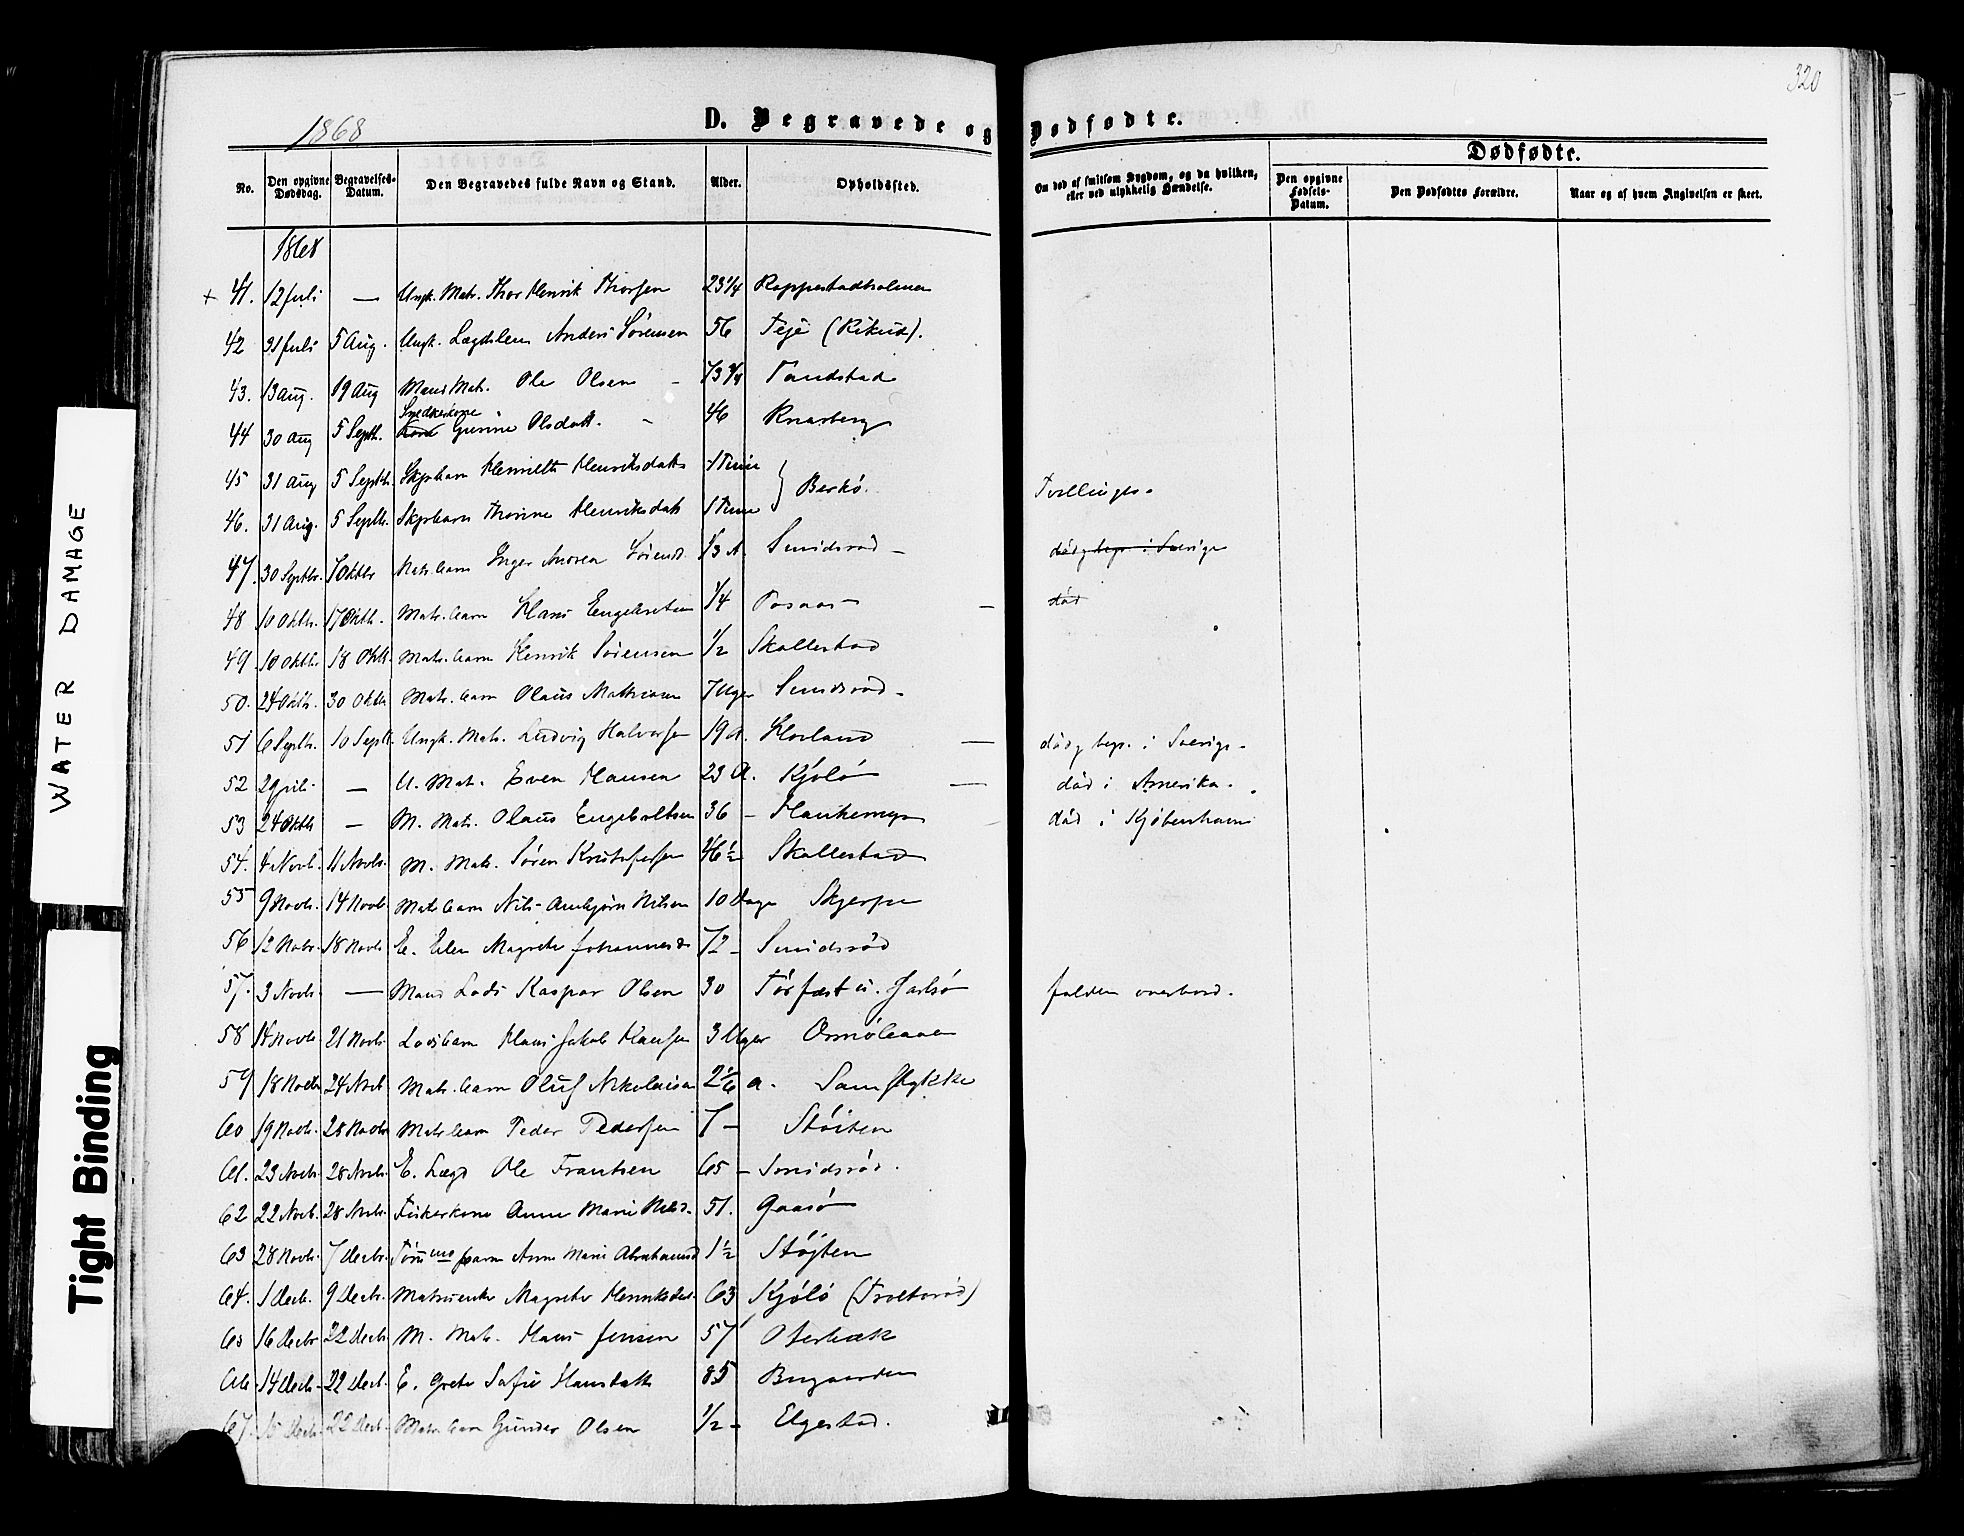 320
1868
D. Begravede og Dødfødte.
No. Den opgivne Dødsdag. Begravelses-Datum. Den Begravedes fulde Navn og Stand. Alder. Opholdssted. Om død af smitsom Sygdom, og da hvilken, eller ved ulykkelig Hændelse. Dødfødte.
Den opgivne Fødsels-Datum. Den Dødfødtes Forældre. Naar og af hvem Angivelsen er skeet.
1868
+ 41. 12 Juli — Ungk. Matr. Thor Henrik Thorsen 23 1/4 Rappestadholmen
42 31 Juli 5 Aug. Ungk. Lægdslem Anders Sörensen 56 Teje
43. 13 Aug. 19 Aug Mand Matr. Ole Olsen 73 3/4
44 30 Aug 5 Septb. Snedkerkone Kone Gurine Olsdatt. 46 Knarberg
45 31 Aug 5 Septb. Henriksdatt 1 Time Berkö. Tvillinger.
46. 31 Aug. 5 Septb. Thorine Henriksdatt 1 Time
47. 30 Septbr. 7 Oktbr Matr. barn Inger Andrea Smidsröd — död og begr. i Sverige
48 10 Oktb. 17 Oktb. Matr. barn Hans Engebretsen 1/4 — död
49. 10 Oktb. 18 Oktb. Matr. barn Henrik Sörensen 1/2 Skallestad
50. 24 Oktb. 30 Oktb Matr. barn Olaus Mathisen 7 Uger Smidsröd -
51 6 Septb. 10 Septb. Ungk. Matr. Ludvig Halvorsen 19 A. — död og begr. i Sverige -
52 — U. Matr. Even Hansen 23 A. Kjölö — död i Amerika.
53 24 Oktb — M. Matr. Olaus Engebretsen 36 - Haukemyr död i Kjöbenhavn
54. 4 Novb. 11 Novbr. M. Matr. Sören Kristofersen 46 1/2 Skallestad
55 9 Novb. 14 Novb Matr barn Nils Nilsen 10 Dage Skjerpe
56 12 Novbr. 18 Novb E. Elen Magrete Johannesd 72 - Smidsröd
57. 3 Novb. — Mand Lods Kaspar Olsen 30 Törfæst u. Jarlsö falden overbord.
58 14 Novb. 21 Novb. Lodsbarn Hans Jakob Hansen 3 Uger
59 18 Novb 24 Novb Matr. barn Oluf Nikolaisen 2 1/6 a.
60 19 Novb. 28 Novb Matr barn Peder Pedersen 7 - Stöiten
61. 23 Novb. 28 Novb. E. Lægd Ole Frantsen 65 - Smidsröd.
62 22 Novb. 28 Novb. Fiskerkone Anne Marie Nilsd. 51. Gaasö
63 28 Novb. 7 Decbr. barn Anne Marie Abrahamsd 1 1/2 Stöjten
64. 1 Decb. 9 Decbr. Matr enke Magrete Henriksdat. 63 Kjölö
65 16 Decbr 22 Decb. M. Matr. Hans Jensen 57 Oterbæk
66 14 Decb. 22 Decb. E. Grete Sofie Hansdatt 85 Brygaarden
67. 15 Decb. 22 Decb. Matr barn Gunder Olsen 1/2 - Elgestad.
WATER DAMAGE
Tight Binding